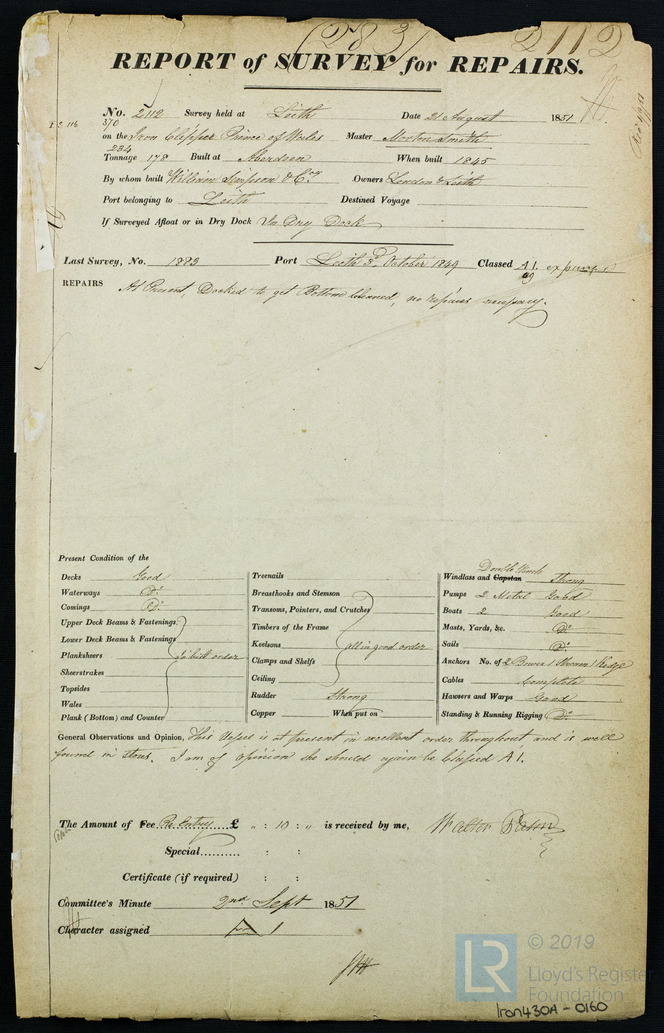 (283) 2112
REPORT of SURVEY for REPAIRS.
No. 2112 Survey held at Leith Date 21 August 1851
370
on the Iron Clipper Prince of Wales Master Morton Smith
234
Tonnage 178 Built at Aberdeen When built 1845
By whom built William Simpson & Coy Owners London & Leith
Port belonging to Leith Destined Voyage
If Surveyed Afloat or in Dry Dock In Dry Dock
Last Survey, No. 1893 Port Leith 3d October 1849 Classed A1.
REPAIRS At Present, Docked to get Bottom Cleaned, no repairs necessary.
Present Condition of the
Decks Good
Waterways Do
Comings Do
Upper Deck Beams & Fastenings
Lower Deck Beams & Fastenings
Planksheers in best order
Sheerstrakes
Topsides
Wales
Plank (Bottom) and Counter
Treenails
Breasthooks and Stemson
Transoms, Pointers, and Crutches
Timbers of the Frame
Keelsons all in good order
Clamps and Shelfs
Ceiling
Rudder Strong
Copper When put on
Double Winch
Windlass and Capstan Strong
Pumps 2 Metal Good
Boats 2 Good
Masts, Yards, &c. Do
Sails Do
Anchors No. of 2 Bower 1 Stream 1 Kedge
Cables Complete
Hawsers and Warps Good
Standing & Running Rigging Do
General Observations and Opinion, This Vessel is at present in excellent order throughout, and is well
found in stores. I am of opinion she should again be Classed A1.
The Amount of Fee Re Entry £ " : 10 : " is received by me, Walter Paton
Special.......... : :
Certificate (if required) : :
Committee's Minute 2nd Sept 1851
Character assigned A 1
LR
© 2019
Lloyd's Register
Foundation
Iron430A - 0160